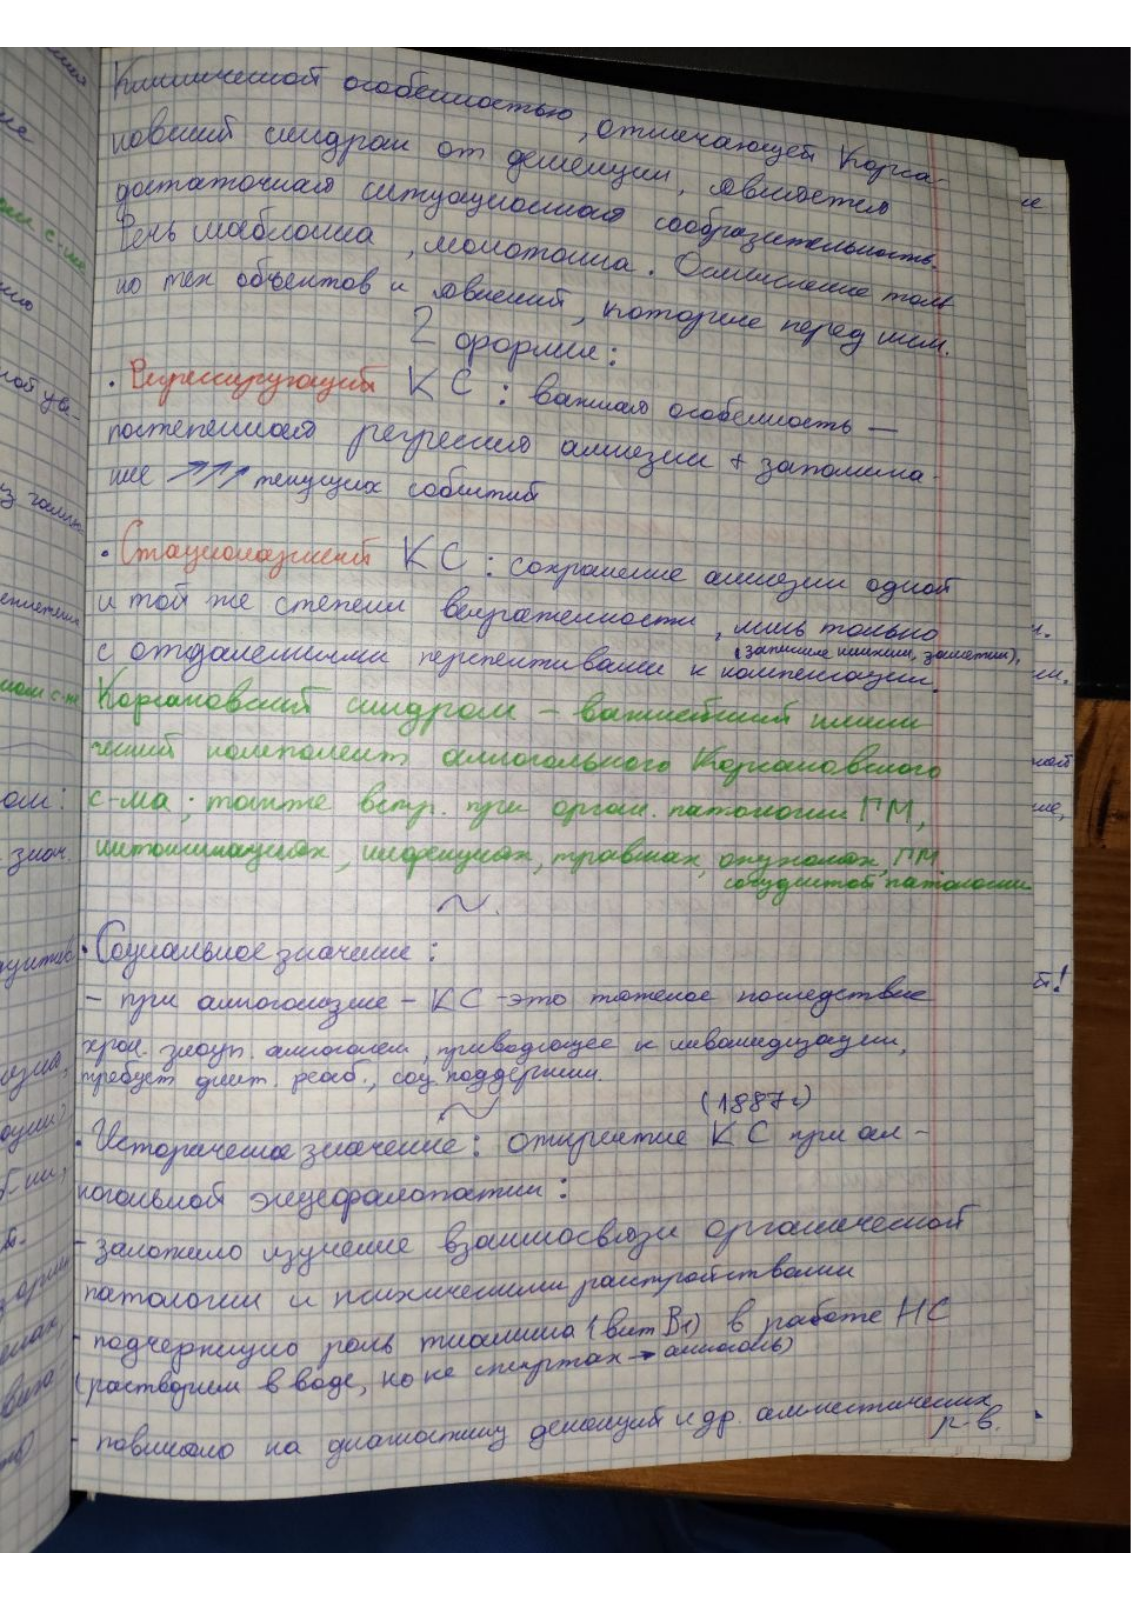 Клинической особенностью, отличающей Корса-
ковский синдром от деменции, является
достаточная ситуационная сообразительность.
Речь шаблонна, монотонна. Осмысление толь
ко тех объектов и явлений, которые перед ним.
2 формы:
• Регрессирующий КС: важная особенность —
постепенная регрессия амнезии + запомина-
ние ↗↗↗ текущих событий
• Стационарный КС: сохранение амнезии одной
и той же степени выраженности, лишь только
(записные книжки, заметки),
с отдаленными перспективами к компенсации.
Корсаковский синдром – важнейший клини
ческий компонент алкогольного Корсаковского
с-ма; также встр. при орган. патологии ГМ,
интоксикациях, инфекциях, травмах, опухолях ГМ
сосудистой патологии.
~.
• Социальное значение:
– при алкоголизме – КС -это тяжелое последствие
хрон. злоуп. алкоголем, приводящее к инвалидизации,
требует длит. реаб., соц поддержки.
~
(1887г)
• Историческое значение: открытие КС при ал-
когольной энцефалопатии:
- заложило изучение взаимосвязи органической
патологии и психическими расстройствами
- подчеркнуло роль тиамина (вит B1) в работе НС
(растворим в воде, но не спиртах → алкоголь)
- повлияло на диагностику деменций и др. амнестических
р-в.